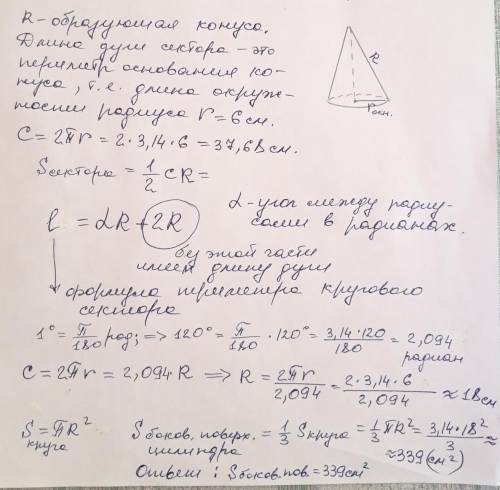 R - образующая конуса.
Длина дуги сектора - это
периметр основания ко-
нуса, т.е. длина окруж-
ности радиуса r = 6 см.
R
rосн.
C = 2πr = 2·3,14·6 = 37,68 см.
Sсектора = 1/2 CR =
α - угол между радиу-
сами в радианах.
l = αR + 2R
без этой части
имеем длину дуги
формула периметра кругового
сектора
1° = π/180 рад; => 120° = π/180 · 120° = 3,14·120/180 = 2,094
радиан
C = 2πr = 2,094·R => R = 2πr/2,094 = 2·3,14·6/2,094 ≈ 18 см
S круга = πR²
S боков. поверх. цилиндра = 1/3 S круга = 1/3 πR² = 3,14·18²/3 ≈
≈ 339 (см²)
Ответ: S боков. пов. = 339 см²